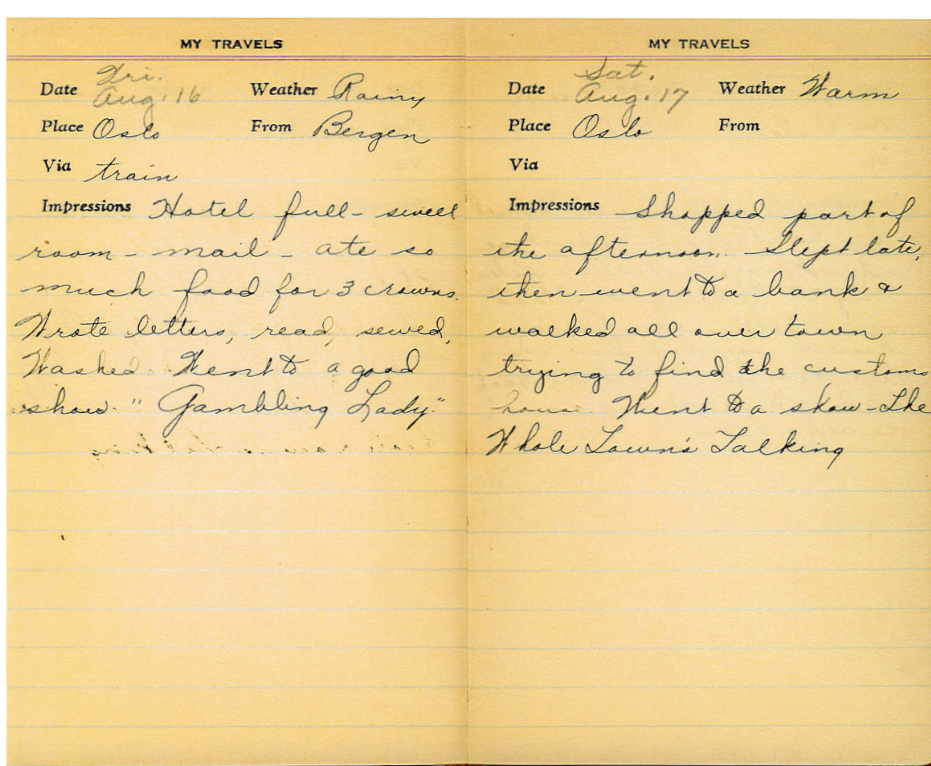 MY TRAVELS
Fri.
Date Aug. 16 Weather Rainy
Place Oslo From Bergen
Via train
Impressions Hotel full - sweet
room - mail - ate so
much food for 3 crowns.
Wrote letters, read, sewed,
Washed. Went to a good
show. "Gambling Lady."
MY TRAVELS
Sat.
Date Aug. 17 Weather Warm
Place Oslo From
Via
Impressions Shopped part of
the afternoon. Slept late,
then went to a bank &
walked all over town
trying to find the customs
house. Went to a show - The
Whole Town's Talking